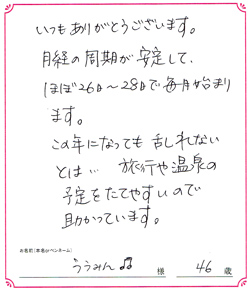 いつもありがとうございます。
月経の周期が安定して、
ほぼ26日～28日で毎月始まり
ます。
この年になっても乱れない
とは… 旅行や温泉の
予定をたてやすいので
助かっています。
お名前(本名orペンネーム)
うらみん♫ 様 46 歳